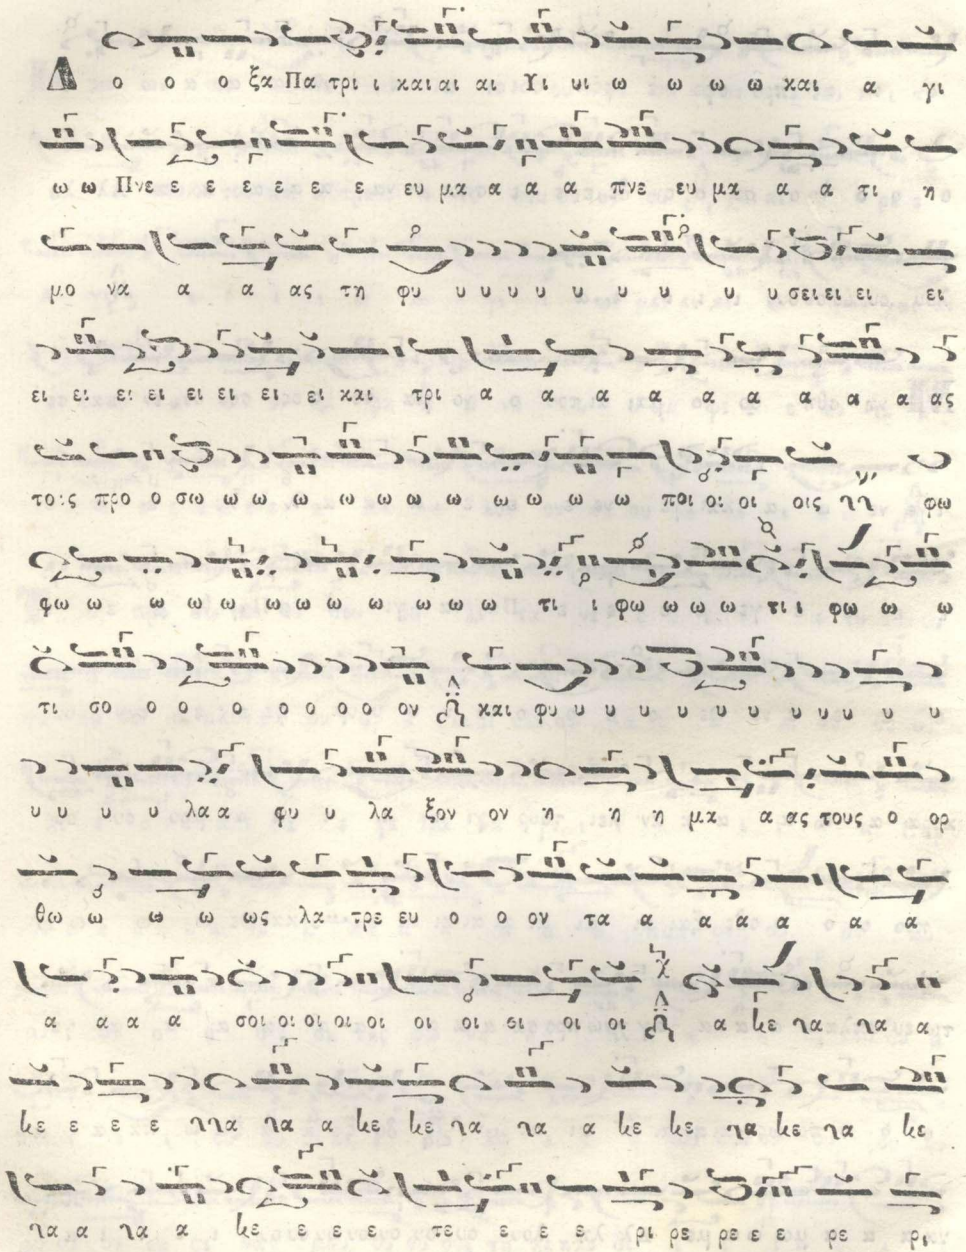 Δ ο ο ο ξα Πα τρι ι και αι αι Υι υι ω ω ω ω και α γι
ω ω Πνε ε ε ε ε ε ε ευ μα α α α πνε ευ μα α α τι η
μο να α α ας τη φυ υ υ υ υ υ υ υ υ υ σει ει ει ει
ει ει ει ει ει ει ει ει και τρι α α α α α α α α ας
τους προ ο σω ω ω ω ω ω ω ω ω ω ω ω ποι οι οι οις φω
φω ω ω ω ω ω ω ω ω ω ω τι ι φω ω ω ω τι ι φω ω ω
τι σο ο ο ο ο ο ο ο ον και φυ υ υ υ υ υ υ υ υ υ υ
υ υ υ υ λα α φυ υ λα ξον ον η η η μα α ας τους ο ορ
θω ω ω ω ως λα τρε ευ ο ο ον τα α α α α α α
α α α α σοι οι οι οι οι οι οι οι οι οι α
α α ε ε ε ε τε ε ε ε ρι ρε ρε ε ε ρε ρι